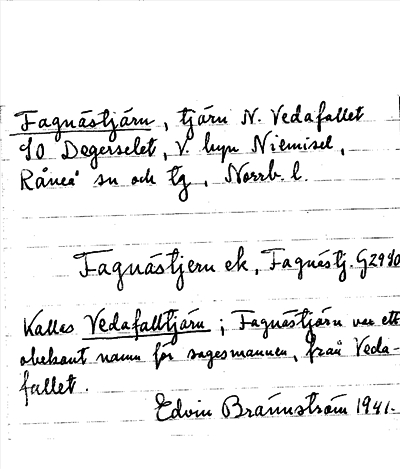 Fagnästjärn, tjärn N. Vedafallet
SO Degerselet, V. byn Niemisel,
Råneå sn och tg, Norrb. l.
Fagnästjern ek, Fagnästj. G2980
Kallas Vedafalltjärn; Fagnästjärn var ett
obekant namn för sagesmannen, från Veda-
fallet.
Edvin Brännström 1941.